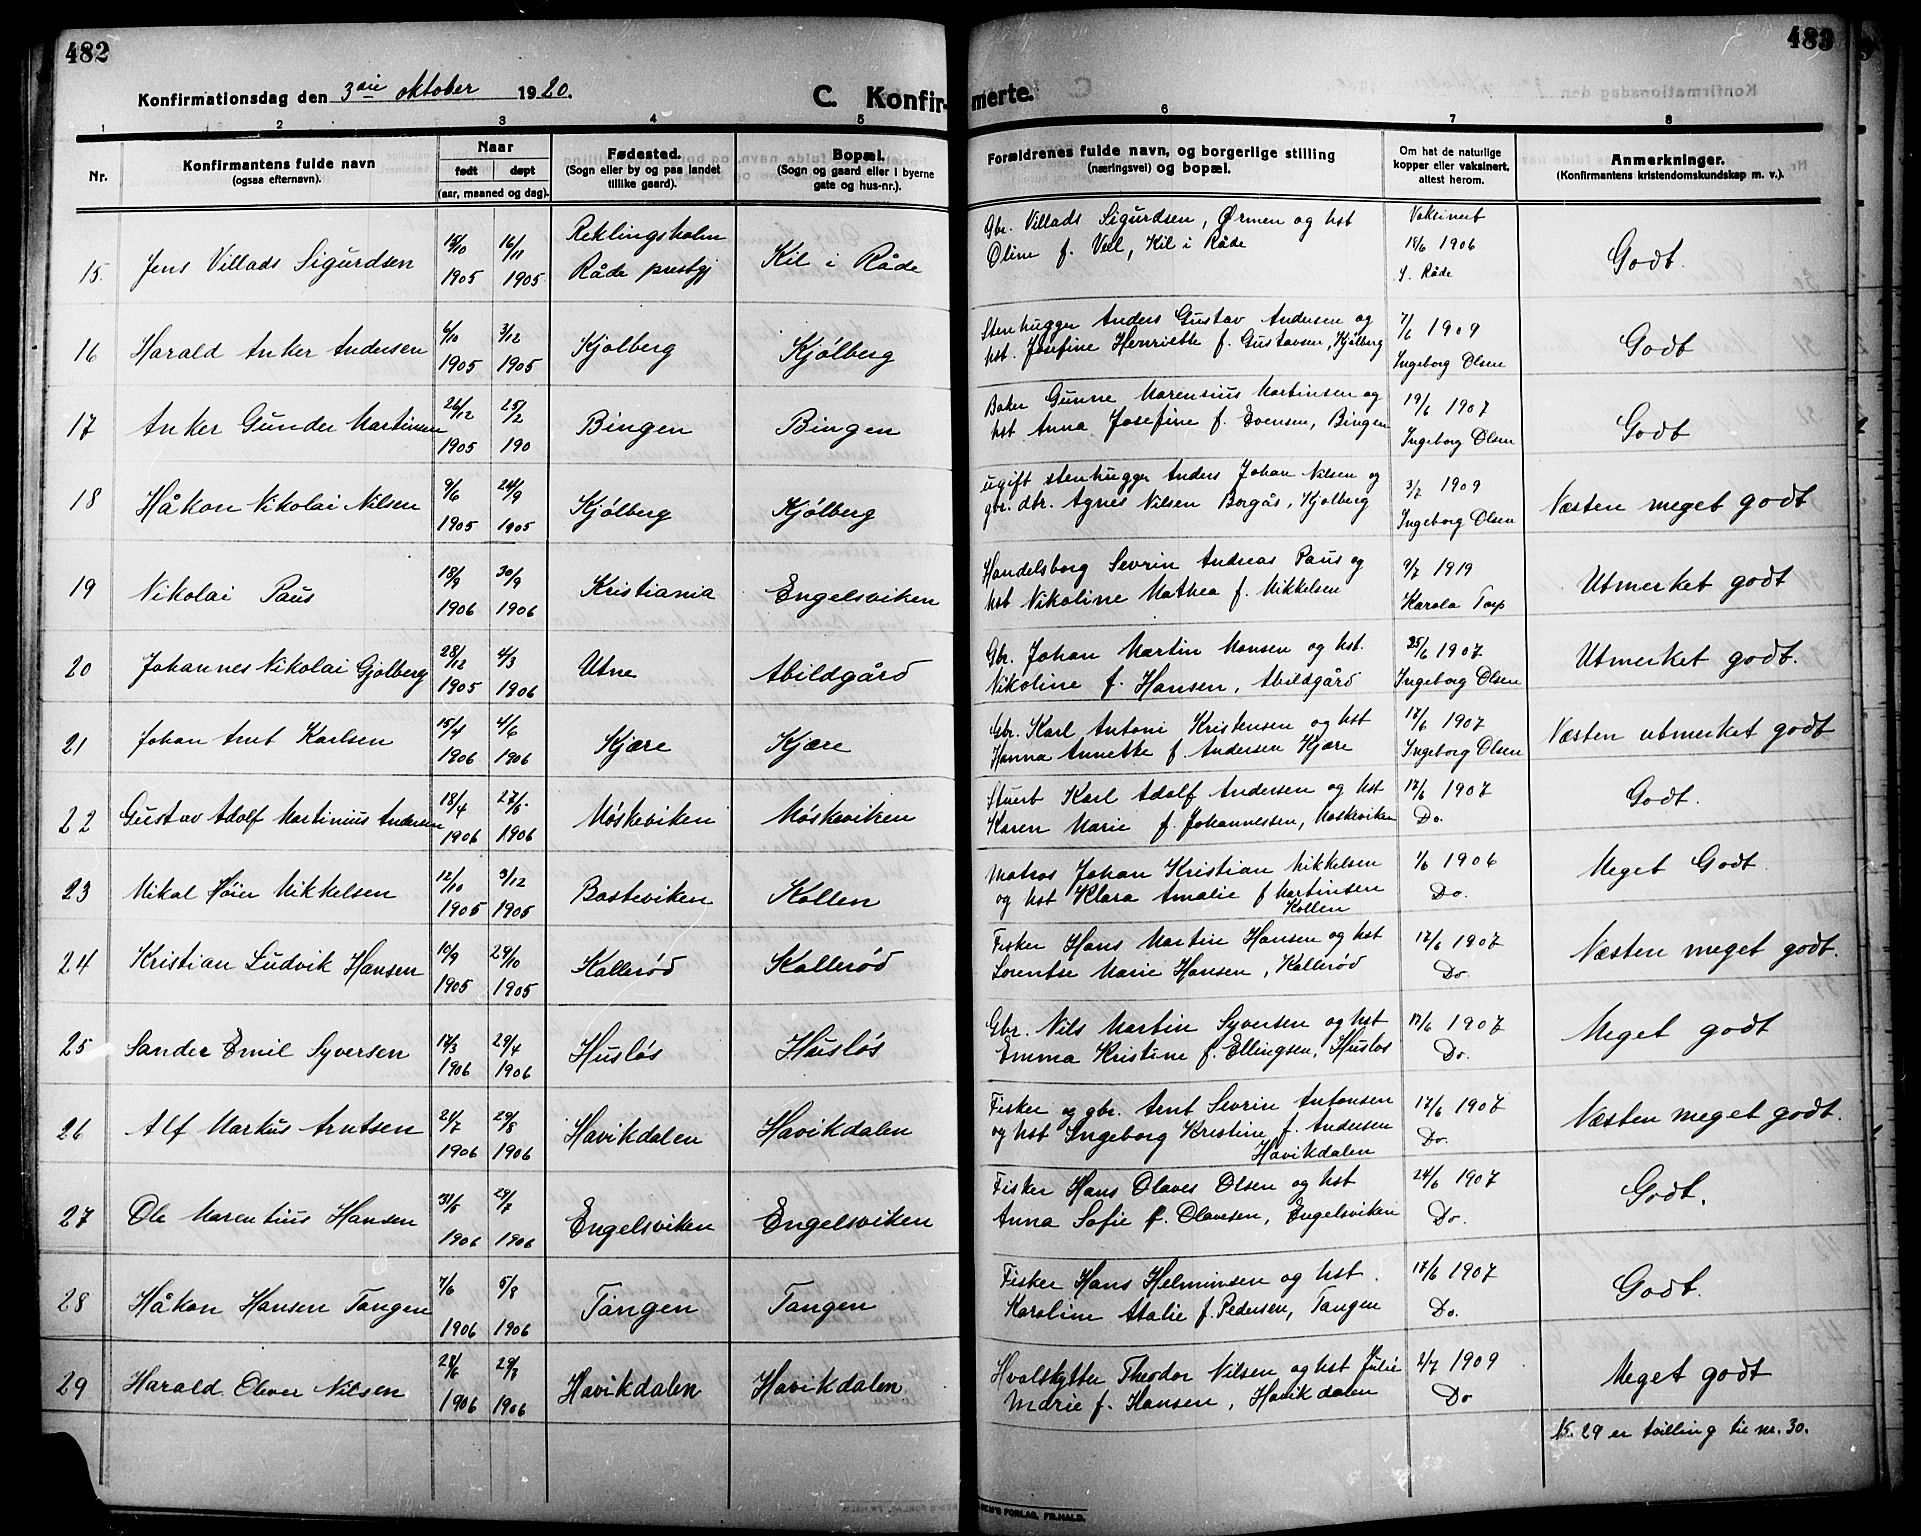 482
483
Konfirmationsdag den 3die oktober 1920.
C. Konfirmerte.
1 2 3 4 5 6 7 8
Nr.
Konfirmantens fulde navn
(ogsaa efternavn).
Naar
født døpt
(aar, maaned og dag).
Fødested.
(Sogn eller by og paa landet
tillike gaard).
Bopæl.
(Sogn og gaard eller i byerne
gate og hus-nr.).
Forældrenes fulde navn, og borgerlige stilling
(næringsvei) og bopæl.
Om hat de naturlige
kopper eller vaksinert.
attest herom.
Anmerkninger.
(Konfirmantens kristendomskundskap m. v.).
15. Jens Villads Sigurdsen 15/10 1905 16/11 1905 Reklingsholm Råde prestgj Kil i Råde
Gbr. Villads Sigurdsen, Ørmen og hst
Oline f. Veel, Kil i Råde
Vaksinert 18/6 1906 S. Råde
Godt.
16 Harald Anker Andersen 6/10 1905 3/12 1905 Kjølberg Kjølberg
Stenhugger Anders Gustav Andersen og
hst. Josefine Henriette f. Gustavsen, Kjølberg
7/6 1909 Ingeborg Olsen
Godt
17 Anker Gunder Martinsen 26/12 1905 25/2 190 Bingen Bingen
Baker Gunne Marensius Martinsen og
hst Anna Josefine f. Evensen, Bingen
19/6 1907 Ingeborg Olsen
Godt
18 Håkon Nikolai Nilsen 9/6 1905 24/9 1905 Kjølberg Kjølberg
ugift stenhugger Anders Johan Nilsen og
gbr. dtr. Agnes Nilsen Borgås, Kjølberg
3/7 1909 Ingeborg Olsen
Næsten meget godt
19 Nikolai Paus 18/9 1906 30/9 1906 Kristiania Engelsviken
Handelsborg Sevrin Andreas Paus og
hst Nikoline Mathea f. Mikkelsen
9/7 1919 Karola Torp
Utmerket godt
20 Johannes Nikolai Gjølberg 28/12 1905 4/3 1906 Utne Abildgård
Gbr. Johan Martin Monsen og hst.
Nikoline f. Hansen, Abildgård
25/6 1907 Ingeborg Olsen
Utmerket godt.
21 Johan Arnt Karlsen 15/4 1906 4/6 1906 Kjære Kjære
Gbr. Karl Antoni Kristensen og hst
Hanna Annette f. Andersen Kjære
17/6 1907 Ingeborg Olsen
Næsten utmerket godt
22 Gustav Adolf Martinius Andersen 18/4 1906 27/5. 1906 Møskeviken Møskeviken
Stuert Karl Adolf Andersen og hst
Karen Marie f. Johannessen, Møskeviken
17/6 1907 Do.
Godt.
23 Mikal Höier Mikkelsen 12/10 1905 3/12 1905 Basteviken Kollen
Matros Johan Kristian Mikkelsen
og hst Klara Amalie f Martinsen
Kollen
1/6 1906 Do.
Meget Godt.
24 Kristian Ludvik Hansen 10/9 1905 29/10 1905 Kallerød Kallerød
Fisker Hans Martin Hansen og hst
Lorentse Marie Hansen, Kallerød
17/6 1907 Do.
Næsten meget godt.
25 Sander Emil Syversen 17/3 1906 29/4 1906 Husløs Husløs
Gbr. Nils Martin Syversen og hst
Emma Kristine f. Ellingsen, Husløs
17/6 1907 Do.
Meget godt
26 Alf Markus Arntsen 21/7 1906 29/8 1906 Havikdalen Havikdalen
Fisker og gbr. Arnt Sevrin Antonsen
og hst Ingeborg Kristine f. Andersen
Havikdalen
17/6 1907 Do.
Næsten meget godt.
27 Ole Marentius Hansen 31/5 1906 29/7 1906 Engelsviken Engelsviken
Fisker Hans Olaves Olsen og hst
Anna Sofie f. Olavesen, Engelsviken
24/6 1907 Do.
Godt.
28 Håkon Hansen Tangen 7/6 1906 5/8 1906 Tangen Tangen
Fisker Hans Helminsen og hst.
Karoline Atalie f. Pedersen, Tangen
17/6 1907 Do.
Godt.
29 Harald Oliver Nilsen 28/6 1906 29/7 1906 Havikdalen Havikdalen
Hvalskytter Theodor Nilsen og hst Julie
Marie f. Hansen, Havikdalen
2/7 1909 Do
Meget godt
N. 29 er tvilling til nr. 30.
FORLAG, FR.HALD.